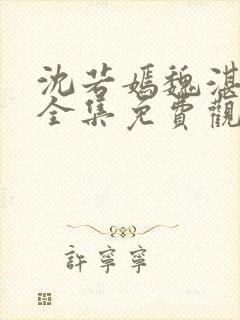 沈若嫣魏湛
全集免費觀
許寧寧